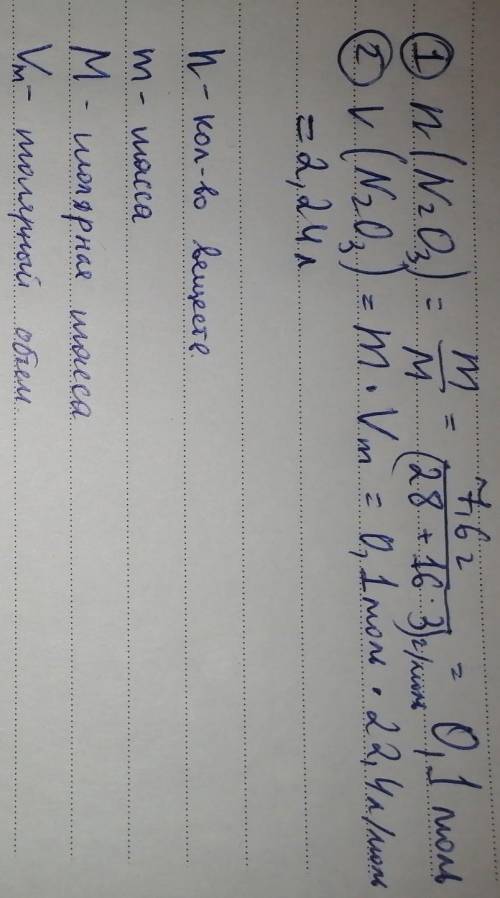 ① n (N₂O₃) = m/M = 7,6 г/(28 + 16·3) г/моль = 0,1 моль
② V (N₂O₃) = m · Vm = 0,1 моль · 22,4 л/моль
= 2,24 л
n - кол-во веществ.
m - масса
M - молярная масса
Vm - молярный объем